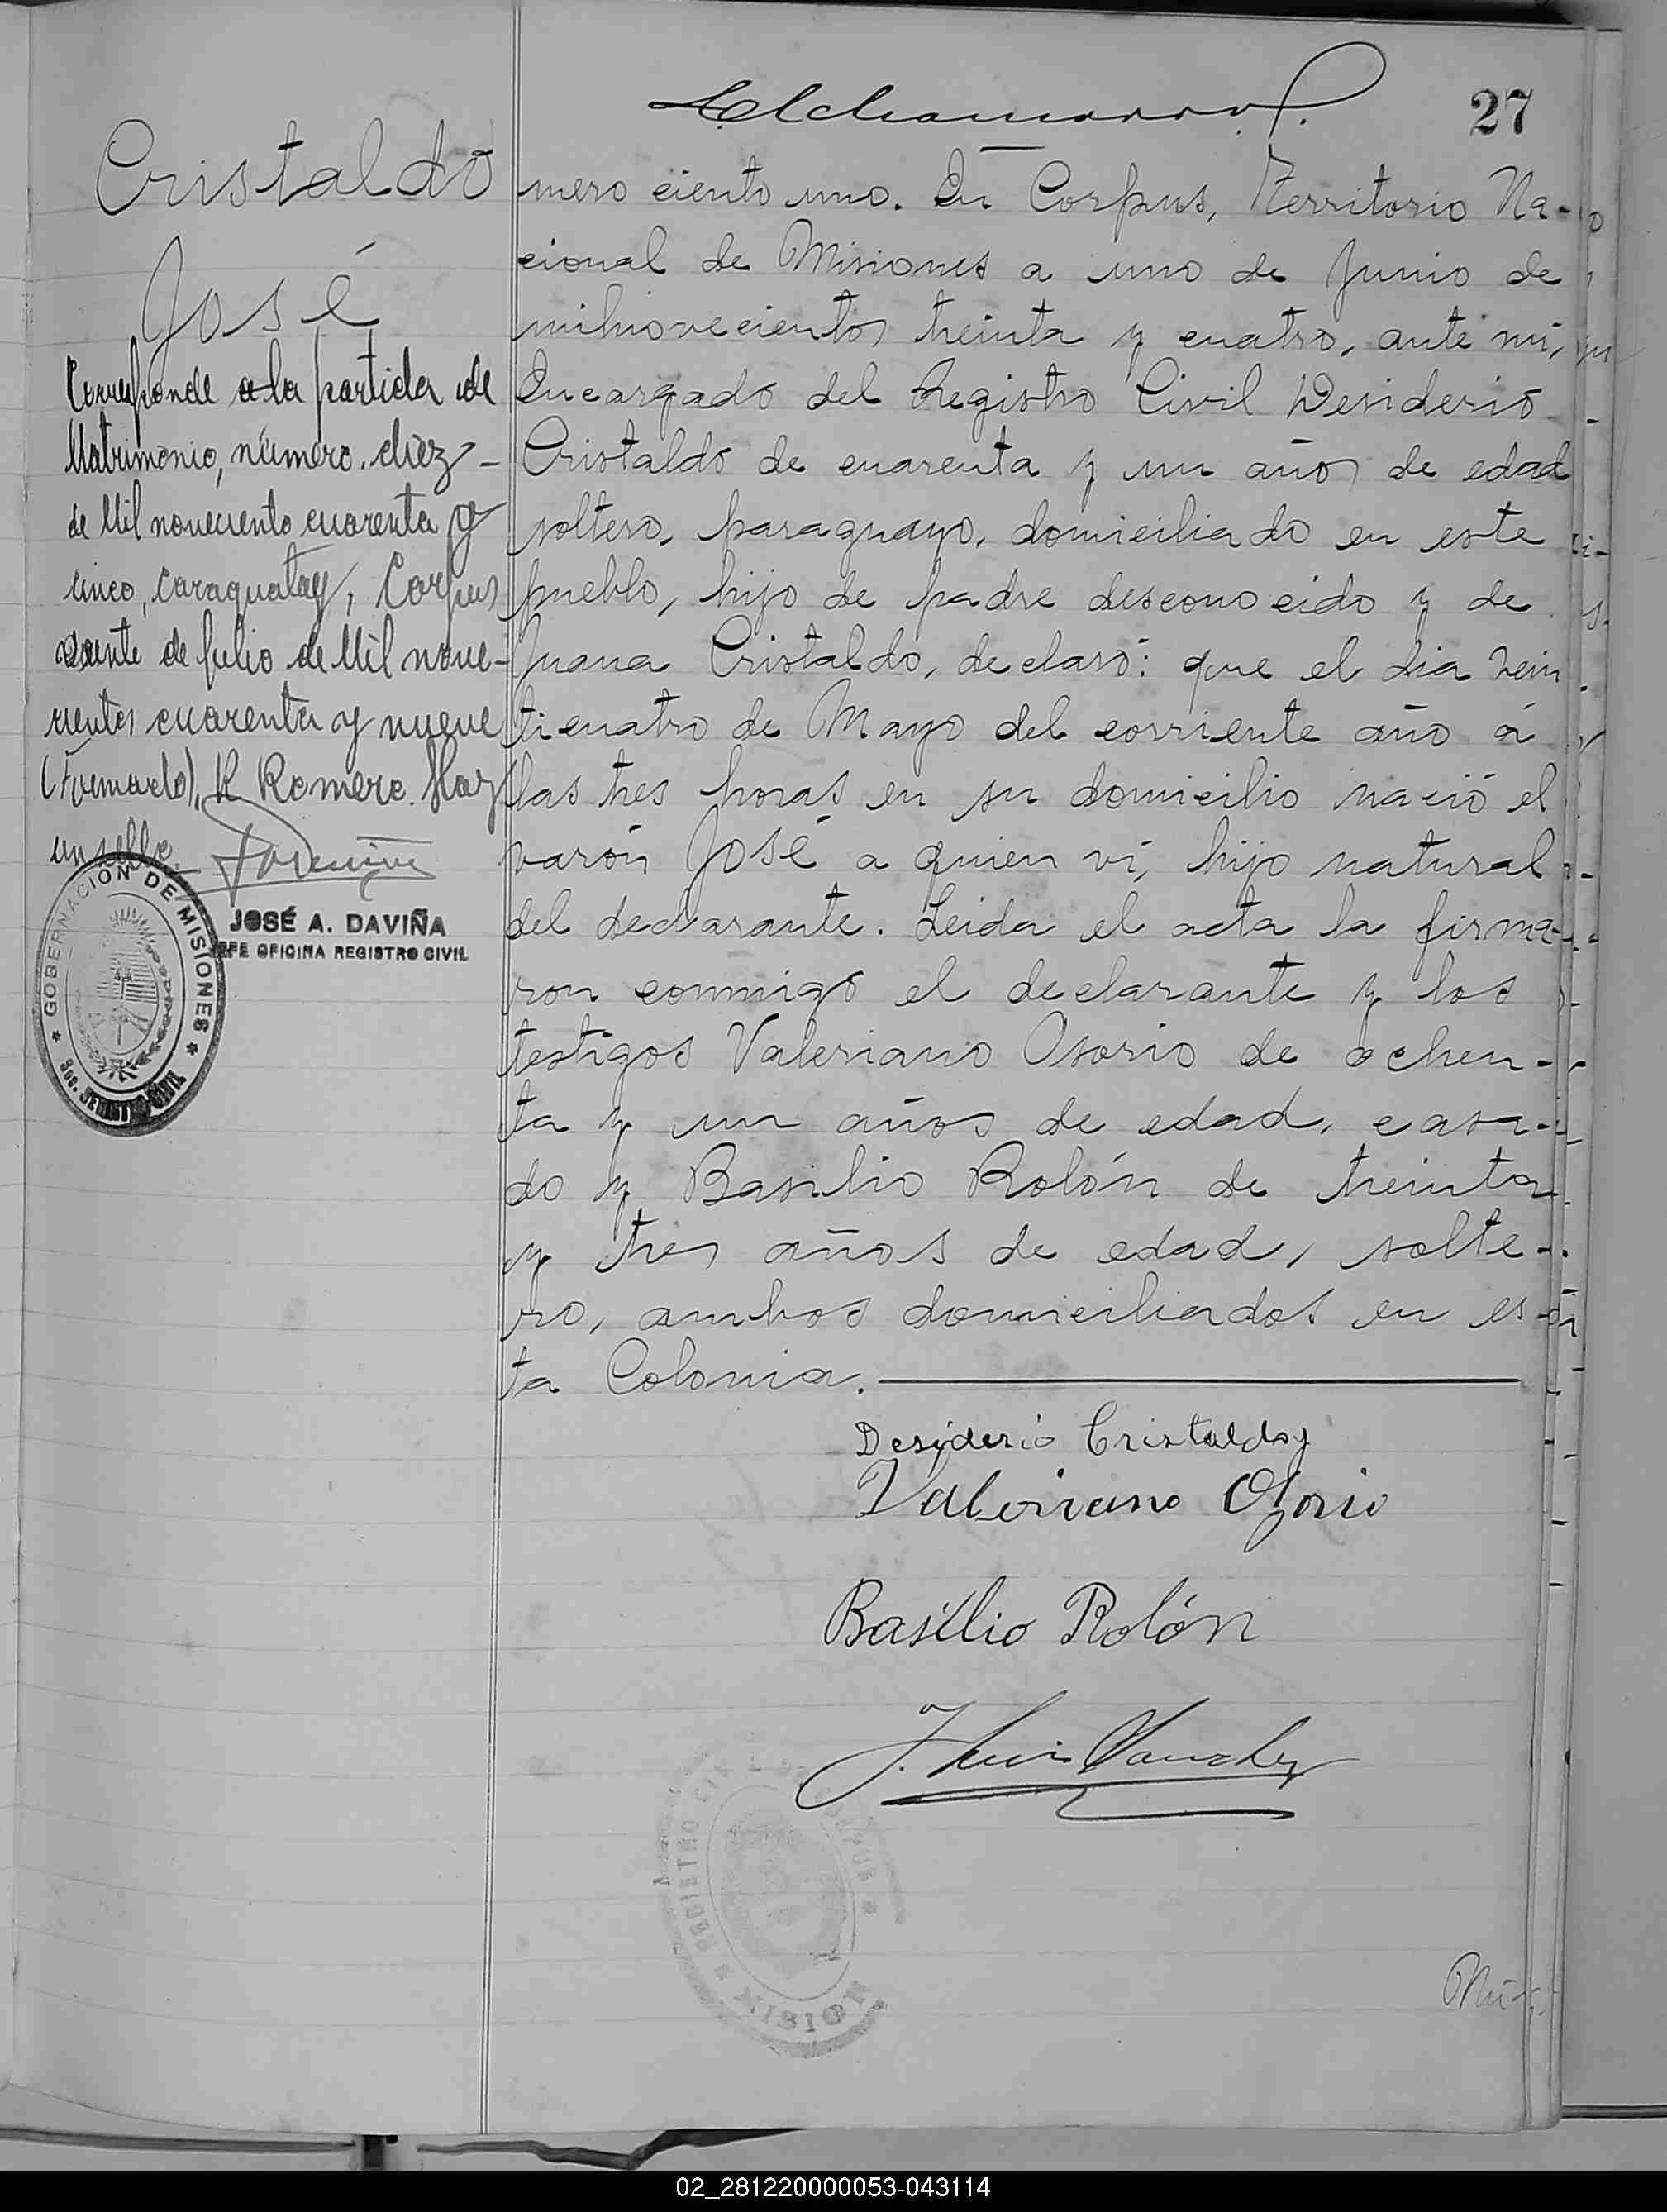 27
Cristaldo
José
Corresponde a la partida de
Matrimonio, número diez-
de Mil noveciento cuarenta y
cinco, Caraguatay, Corpus
veinte de Julio de Mil nove-
cientos cuarenta y nueve
(Firmado), R Romero. Hay
un sello.
JOSÉ A. DAVIÑA
JEFE OFICINA REGISTRO CIVIL
GOBERNACION DE MISIONES
mero ciento uno. En Corpus, Territorio Na-
cional de Misiones a uno de Junio de
milnovecientos treinta y cuatro, ante mí,
Encargado del Registro Civil Desiderio
Cristaldo de cuarenta y un años de edad
soltero, paraguayo, domiciliado en este
pueblo, hijo de padre desconocido y de
Juana Cristaldo, declaró: que el dia vein
ticuatro de Mayo del corriente año á
las tres horas en su domicilio nació el
varón José a quien ví, hijo natural
del declarante. Leida el acta la firma-
ron conmigo el declarante y los
testigos Valeriano Osorio de ochen-
ta y un años de edad, casa-
do y Basilio Rolón de treinta
y tres años de edad, solte-
ro, ambos domiciliados en es-
ta Colonia.
Desiderio Cristaldo
Valeriano Ozorio
Basilio Rolón
REGISTRO CIVIL
MISION
02_281220000053-043114